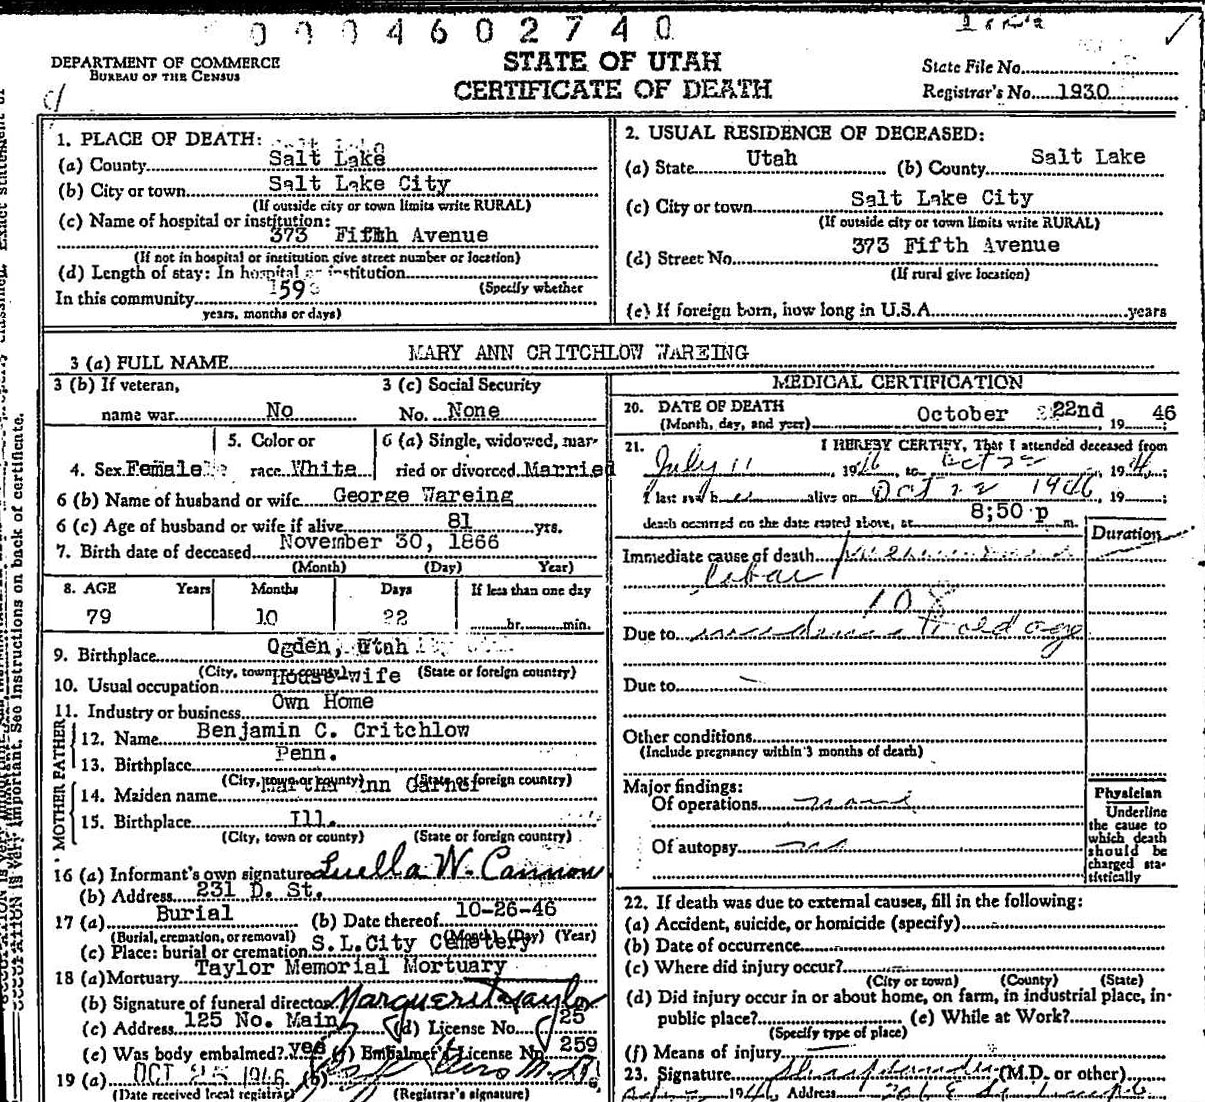 0004602740
DEPARTMENT OF COMMERCE
BUREAU OF THE CENSUS
STATE OF UTAH
CERTIFICATE OF DEATH
State File No.
Registrar's No. 1930
1. PLACE OF DEATH:
(a) County Salt Lake
(b) City or town Salt Lake City
(If outside city or town limits write RURAL)
(c) Name of hospital or institution:
373 Fifth Avenue
(If not in hospital or institution give street number or location)
(d) Length of stay: In hospital or institution
(Specify whether
In this community 59
years, months or days)
2. USUAL RESIDENCE OF DECEASED:
(a) State Utah (b) County Salt Lake
(c) City or town Salt Lake City
(If outside city or town limits write RURAL)
(d) Street No. 373 Fifth Avenue
(If rural give location)
(e) If foreign born, how long in U.S.A. years
3 (a) FULL NAME MARY ANN CRITCHLOW WAREING
3 (b) If veteran, 3 (c) Social Security
name war No No. None
4. Sex Female 5. Color or race White 6 (a) Single, widowed, married or divorced Married
6 (b) Name of husband or wife George Wareing
6 (c) Age of husband or wife if alive 81 yrs.
7. Birth date of deceased November 30, 1866
(Month) (Day) Year)
8. AGE Years Months Days If less than one day
79 10 22 hr. min.
9. Birthplace Ogden, Utah
(City, town or county) (State or foreign country)
10. Usual occupation Housewife
11. Industry or business Own Home
FATHER
12. Name Benjamin C. Critchlow
13. Birthplace Penn.
(City, town or county) (State or foreign country)
MOTHER
14. Maiden name Martha Ann Garner
15. Birthplace Ill.
(City, town or county) (State or foreign country)
16 (a) Informant's own signature Luella W. Cannon
(b) Address 231 D. St.
17 (a) Burial (b) Date thereof 10-26-46
(Burial, cremation, or removal) (Month) (Day) (Year)
(c) Place: burial or cremation S.L.City Cemetery
18 (a) Mortuary Taylor Memorial Mortuary
(b) Signature of funeral director Marguerite Taylor
(c) Address 125 No. Main (d) License No. 25
(e) Was body embalmed? yes (f) Embalmer's License No. 259
19 (a) OCT 25 1946 (b)
(Date received local registrar) (Registrar's signature)
MEDICAL CERTIFICATION
20. DATE OF DEATH
(Month, day, and year) October 22nd, 19 46
21. I HEREBY CERTIFY, That I attended deceased from
July 11 1946 to Oct 22 1946;
I last saw h alive on Oct 22 1946, 19 ;
death occurred on the date stated above, at 8;50 p m.
Duration
Immediate cause of death pneumonia
lobar
108
Due to old age
Due to
Other conditions
(Include pregnancy within 3 months of death)
Major findings:
Of operations none
Of autopsy no
Physician
Underline
the cause to
which death
should be
charged sta-
tistically
22. If death was due to external causes, fill in the following:
(a) Accident, suicide, or homicide (specify)
(b) Date of occurrence
(c) Where did injury occur?
(City or town) (County) (State)
(d) Did injury occur in or about home, on farm, in industrial place, in
public place? (e) While at Work?
(Specify type of place)
(f) Means of injury
23. Signature (M.D. or other)
1946 Address
important. See instructions on back of certificate.